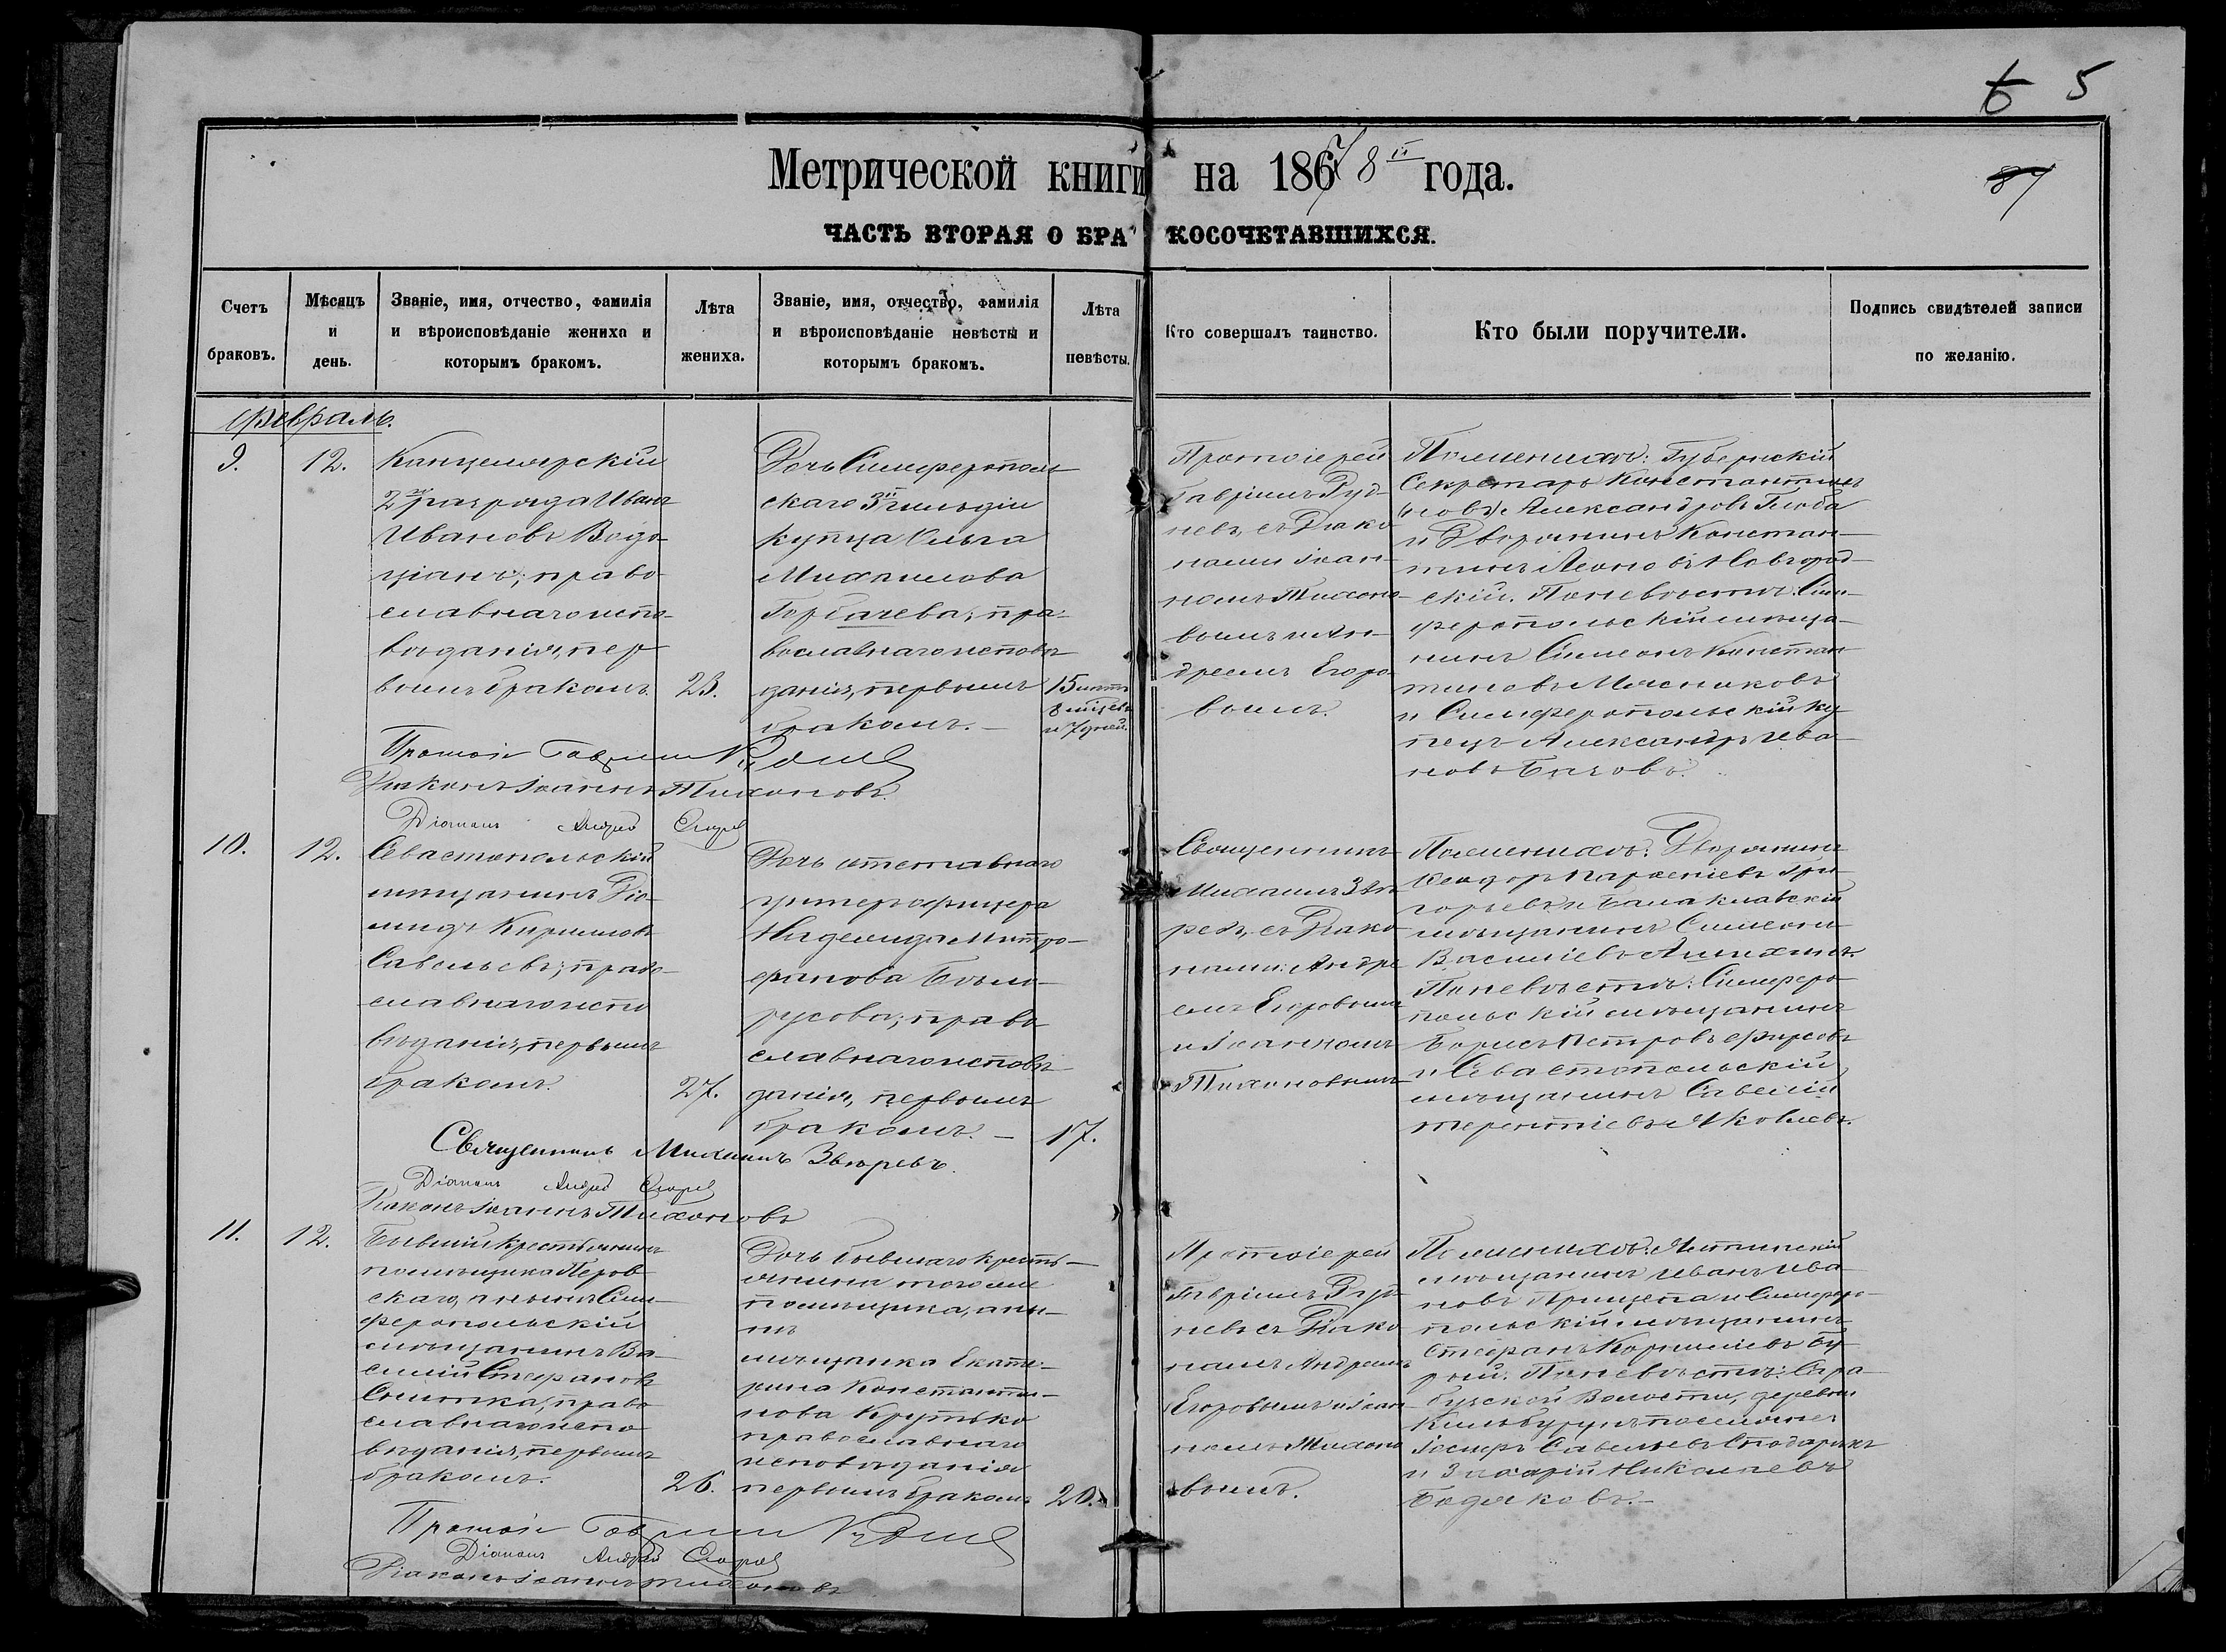 6 5
Метрической книги на 1868 II года.
87
ЧАСТЬ ВТОРАЯ О БРАКОСОЧЕТАВШИХСЯ.
Счетъ браковъ.
Мѣсяцъ и день.
Званіе, имя, отчество, фамилія
и вѣроисповѣданіе жениха и
которымъ бракомъ.
Лѣта жениха.
Званіе, имя, отчество, фамилія
и вѣроисповѣданіе невѣсты и
которымъ бракомъ.
Лѣта невѣсты.
Кто совершалъ таинство.
Кто были поручители.
Подпись свидѣтелей записи
по желанію.
Февраль.
9.
12.
Канцелярскій
2го разряда Иванъ
Ивановъ
право-
славнаго испо-
вѣданія, пер
вымъ бракомъ.
23.
Дочь Симферополь
скаго 3й гильдіи
купца Ольга
Михаилова
Горбачева; пра-
вославнаго исповѣ
данія, первымъ
бракомъ. —
15 лѣтъ
8 мѣсяц
и 7 дней.
Протоіерей
Гавріилъ Руд-
невъ, съ Діако
нами Іоан-
номъ Тихоно-
вымъ и Ан-
дреемъ Егоро-
вымъ.
По женихѣ: Губернскій
Секретарь Константинъ
Александровъ
и Дворянинъ Констан-
тинъ Новгород-
скій. По невѣстѣ: Сим-
феропольскій мѣща-
нинъ Симеонъ Констан
тиновъ Мясниковъ
и Симферопольскій ку
пецъ Александръ Ива-
новъ
Протоіе Гавріилъ Рудневъ
Діаконъ Іоаннъ Тихоновъ.
Діаконъ Андрей Егоровъ
10.
12.
Севастопольскій
мѣщанинъ Діо-
мидъ Кириловъ
Савельевъ; право-
славнаго испо
вѣданія, первымъ
бракомъ.
27.
Дочь отставнаго
унтеръ офицера
Надежда Митро-
фанова Бѣло-
русова; право
славнаго исповѣ
данія, первымъ
бракомъ. —
17.
Священникъ
Михаилъ Звѣ
ревъ, съ Діако
нами: Андре
емъ Егоровымъ
и Іоанномъ
Тихоновымъ
По женихѣ: Дворянинъ
Парѳеніевъ Гри-
горьевъ и Балаклавскій
мѣщанинъ Симеонъ
Василіевъ
По невѣстѣ: Симферо
польскій мѣщанинъ
Борисъ Петровъ Фирсовъ
и Севастопольскій
мѣщанинъ Савелій
Терентіевъ Яковлевъ.
Священникъ Михаилъ Звѣревъ.
Діаконъ Андрей Егоровъ
Діаконъ Іоаннъ Тихоновъ
11.
12.
Бывшій крестьянинъ
помѣщика Перов
скаго, а нынѣ Сим-
феропольскій
мѣщанинъ Ва-
силій Стефановъ
право
славнаго испо
вѣданія, первымъ
бракомъ.
26.
Дочь бывшаго кресть-
янина того же
помѣщика, а ны-
нѣ
мѣщанка Екате-
рина Константи-
нова Крутько
православнаго
исповѣданія
первымъ бракомъ
20.
Протоіерей
Гавріилъ Руд
невъ съ Діако
номъ Андреемъ
Егоровымъ и Іоан-
номъ Тихоно
вымъ.
По женихѣ:
мѣщанинъ Иванъ Ива-
новъ Прищепа и Симферо-
польскій мѣщанинъ
Стефанъ Корниліевъ Бу-
рый. По невѣстѣ: Сара-
бузской Волости, деревни
Кильбурунъ поселяне
Іосифъ Савельевъ
и Захарій Николаевъ
Бадяковъ. —
Протоіе Гавріилъ Рудневъ
Діаконъ Андрей Егоровъ
Діаконъ Іоаннъ Тихоновъ